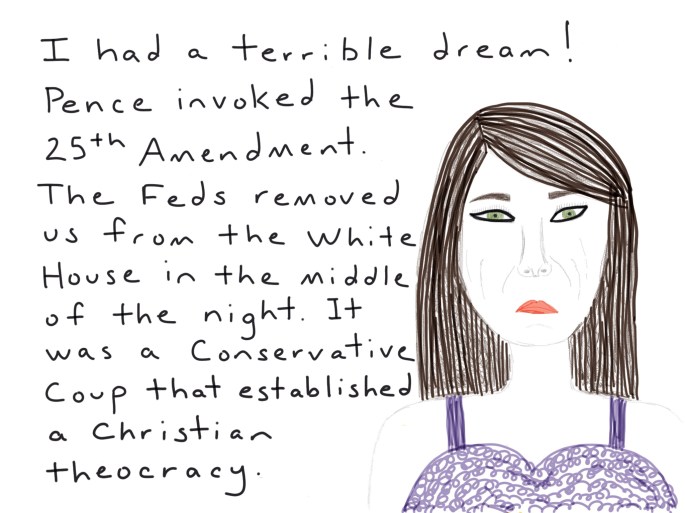 I had a terrible dream!
Pence invoked the
25th Amendment.
The Feds removed
us from the White
House in the middle
of the night. It
was a Conservative
Coup that established
a Christian
theocracy.